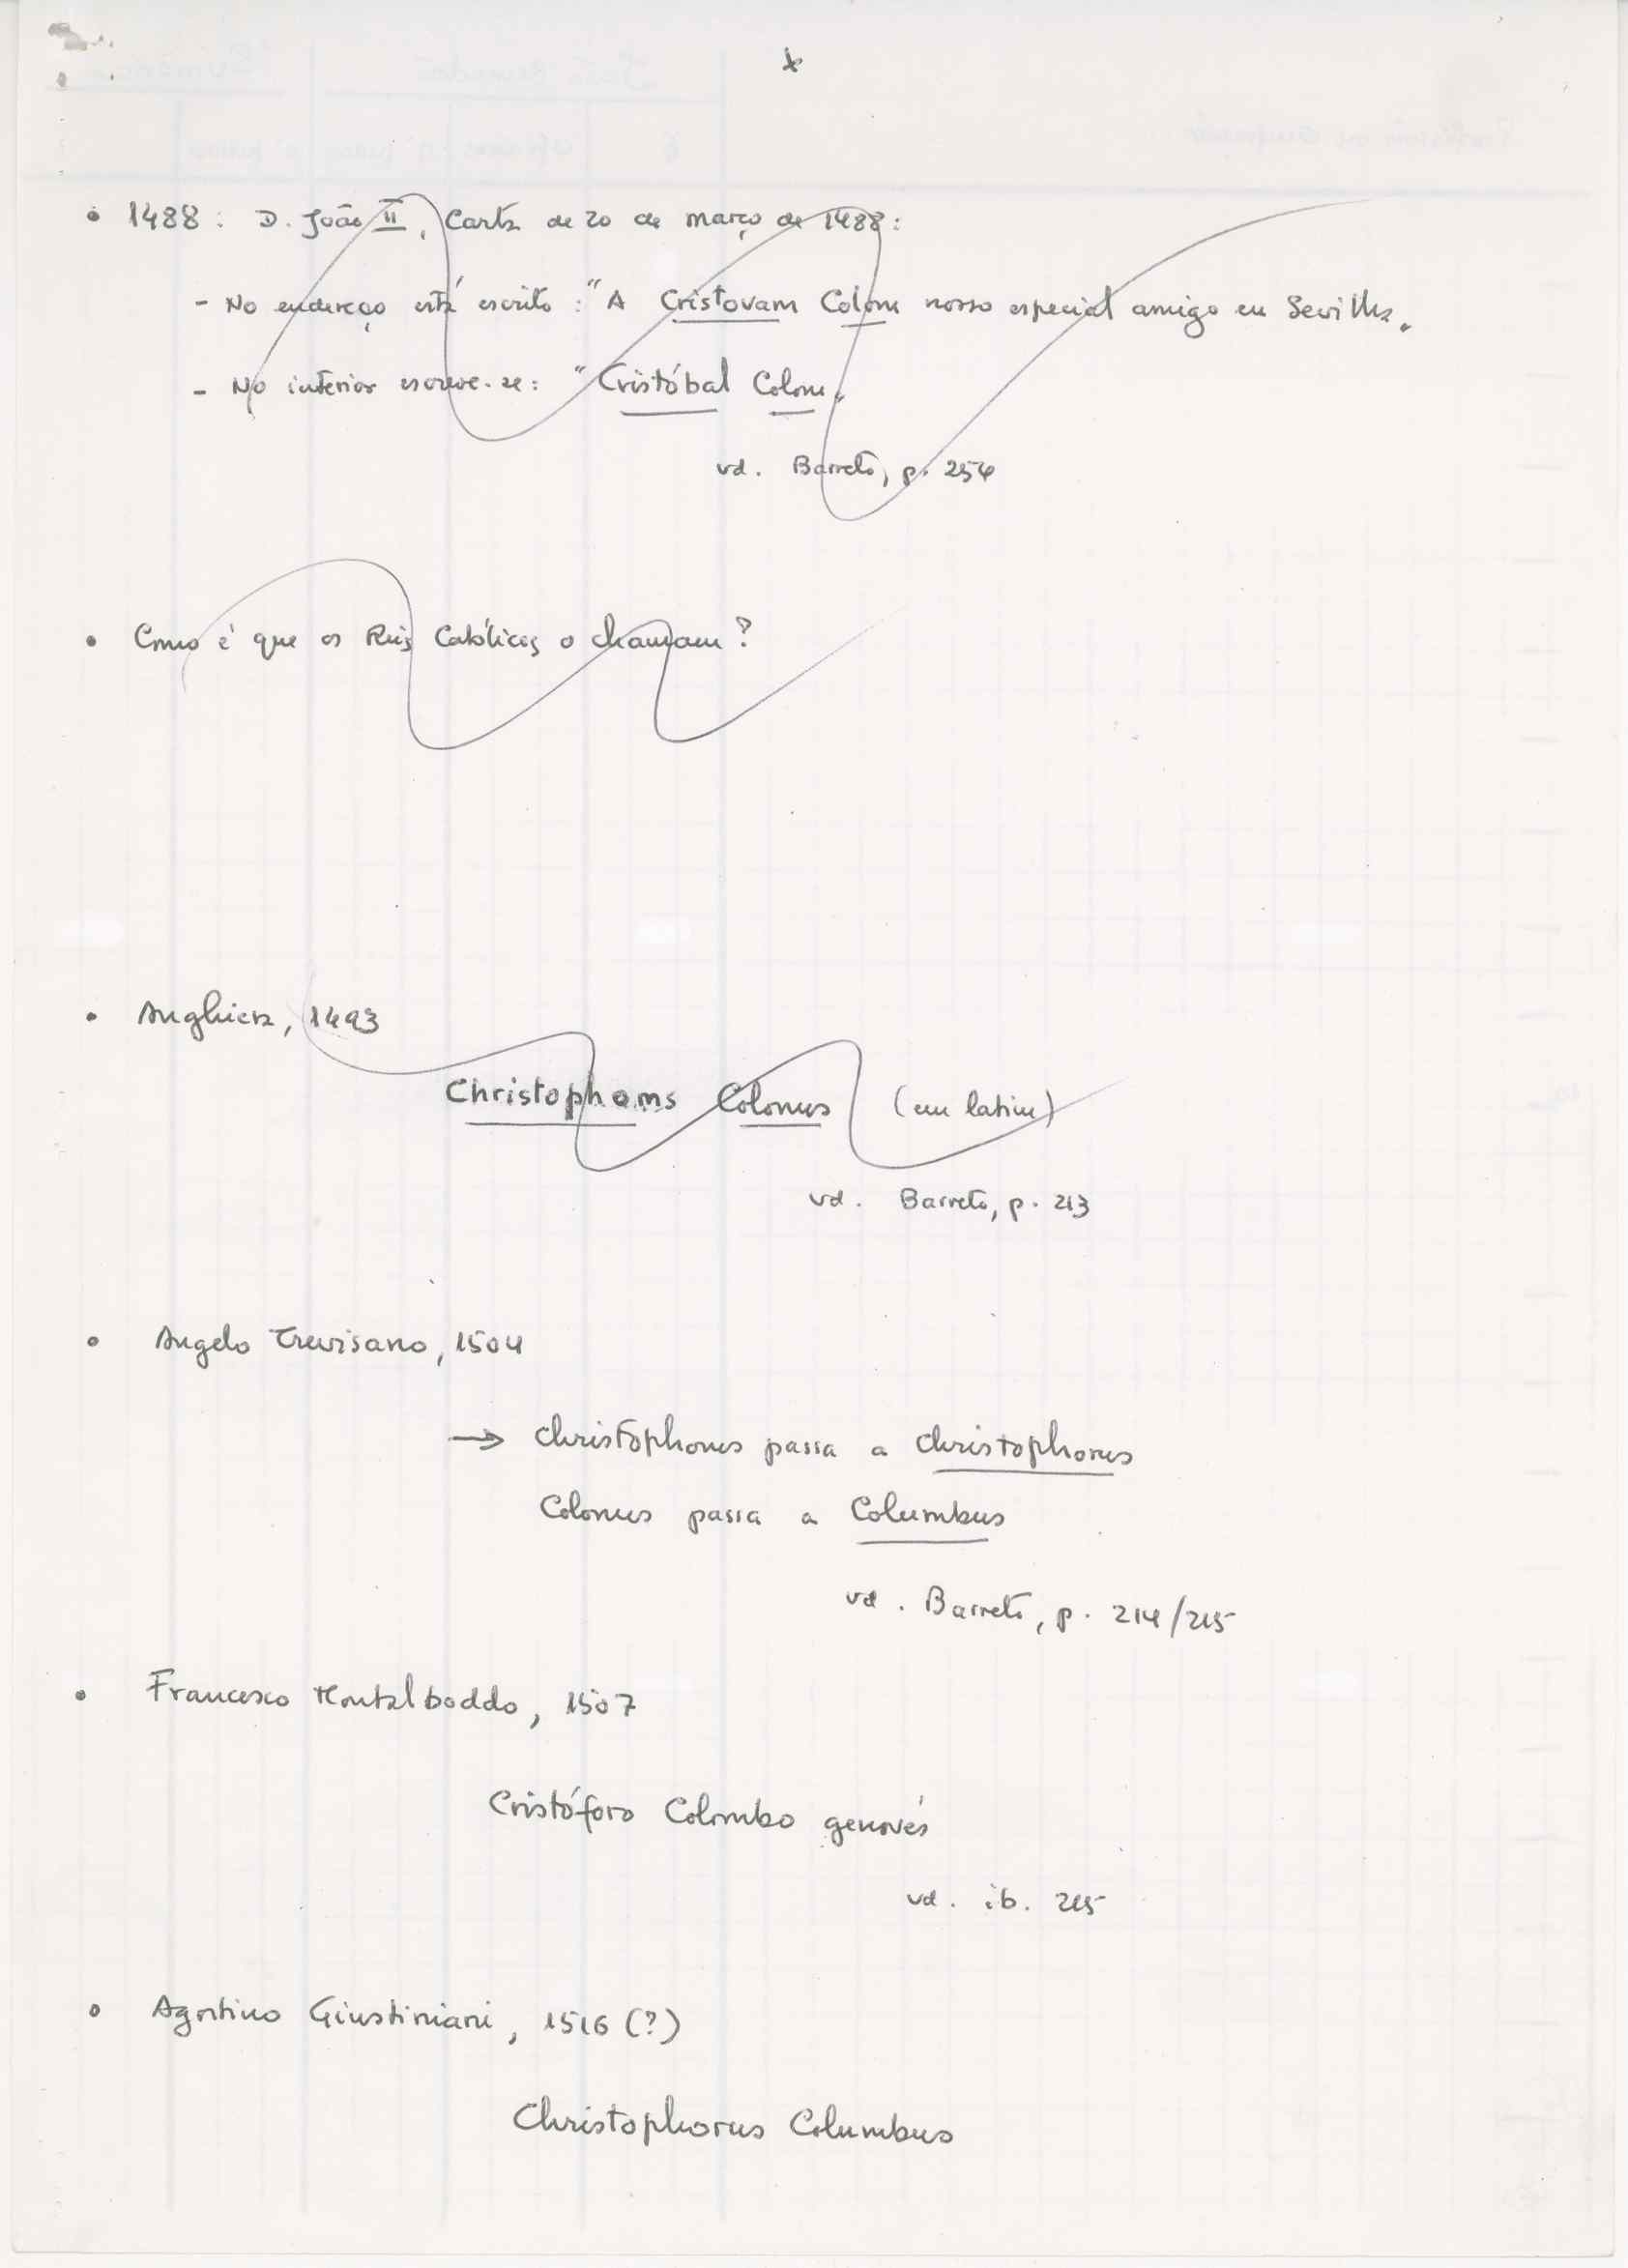 • 1488: D. João II, Carta de 20 de março de 1488:
- No endereço está escrito: "A Cristovam Colom nosso especial amigo en Sevilha.
- No interior escreve-se: "Cristóbal Colom.
vd. Barreto, p. 254
• Como é que os Reis Católicos o chamam?
• Anghiera, 1493
Christophoms Colonus (em latim)
vd. Barreto, p. 213
• Angelo Trevisano, 1504
→ Christophorus passa a Christophorus
Colonus passa a Columbus
vd. Barreto, p. 214/215
• Francesco Montalboddo, 1507
Cristóforo Colombo genovés
vd. ib. 215
• Agostino Giustiniani, 1516 (?)
Christophorus Columbus